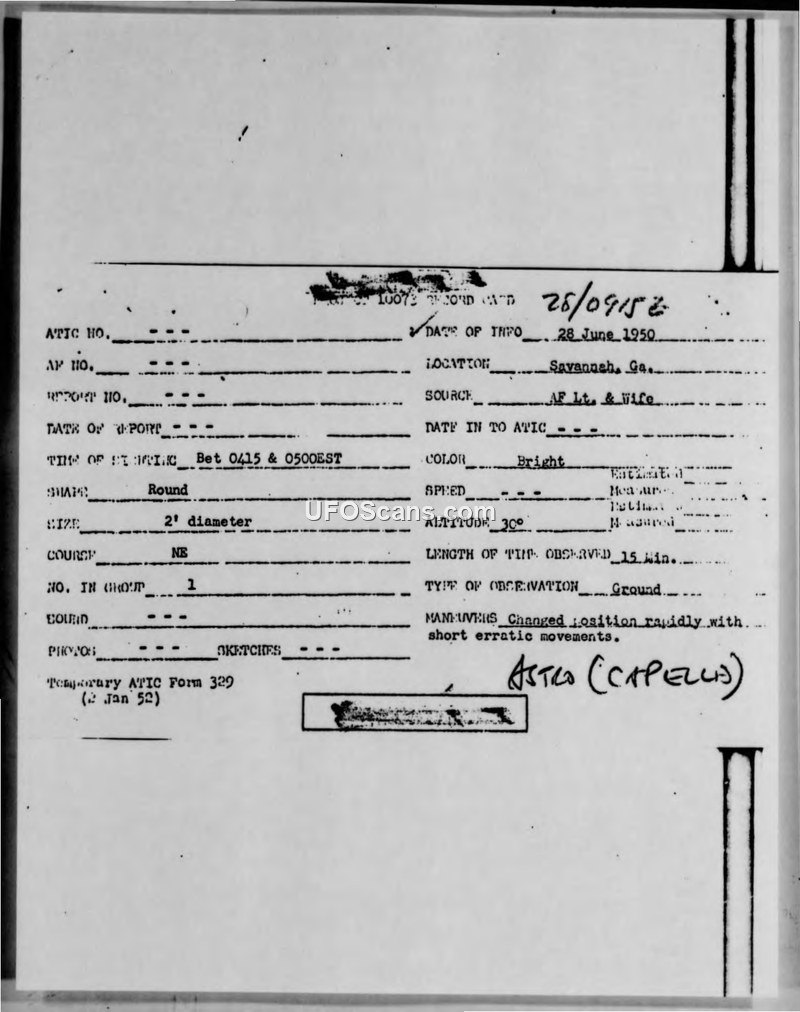 10073 RECORD CARD 28/0915Z
ATIC NO. - - - ✓ DATE OF INFO 28 June 1950
AF NO. - - - LOCATION Savannah, Ga.
REPORT NO. - - - SOURCE AF Lt. & Wife
DATE OF REPORT - - - DATE IN TO ATIC - - -
TIME OF SIGHTING Bet 0415 & 0500EST COLOR Bright
SHAPE Round SPEED - - - Estimated
Measured
SIZE 2' diameter ALTITUDE 30° Estimated
Measured
COURSE NE LENGTH OF TIME OBSERVED 15 Min.
NO. IN GROUP 1 TYPE OF OBSERVATION Ground
SOUND - - - MANEUVERS Changed position rapidly with
short erratic movements.
PHOTOS - - - SKETCHES - - -
Temporary ATIC Form 329
(2 Jan 52)
ASTRO (CAPELLA)
UFOScans.com